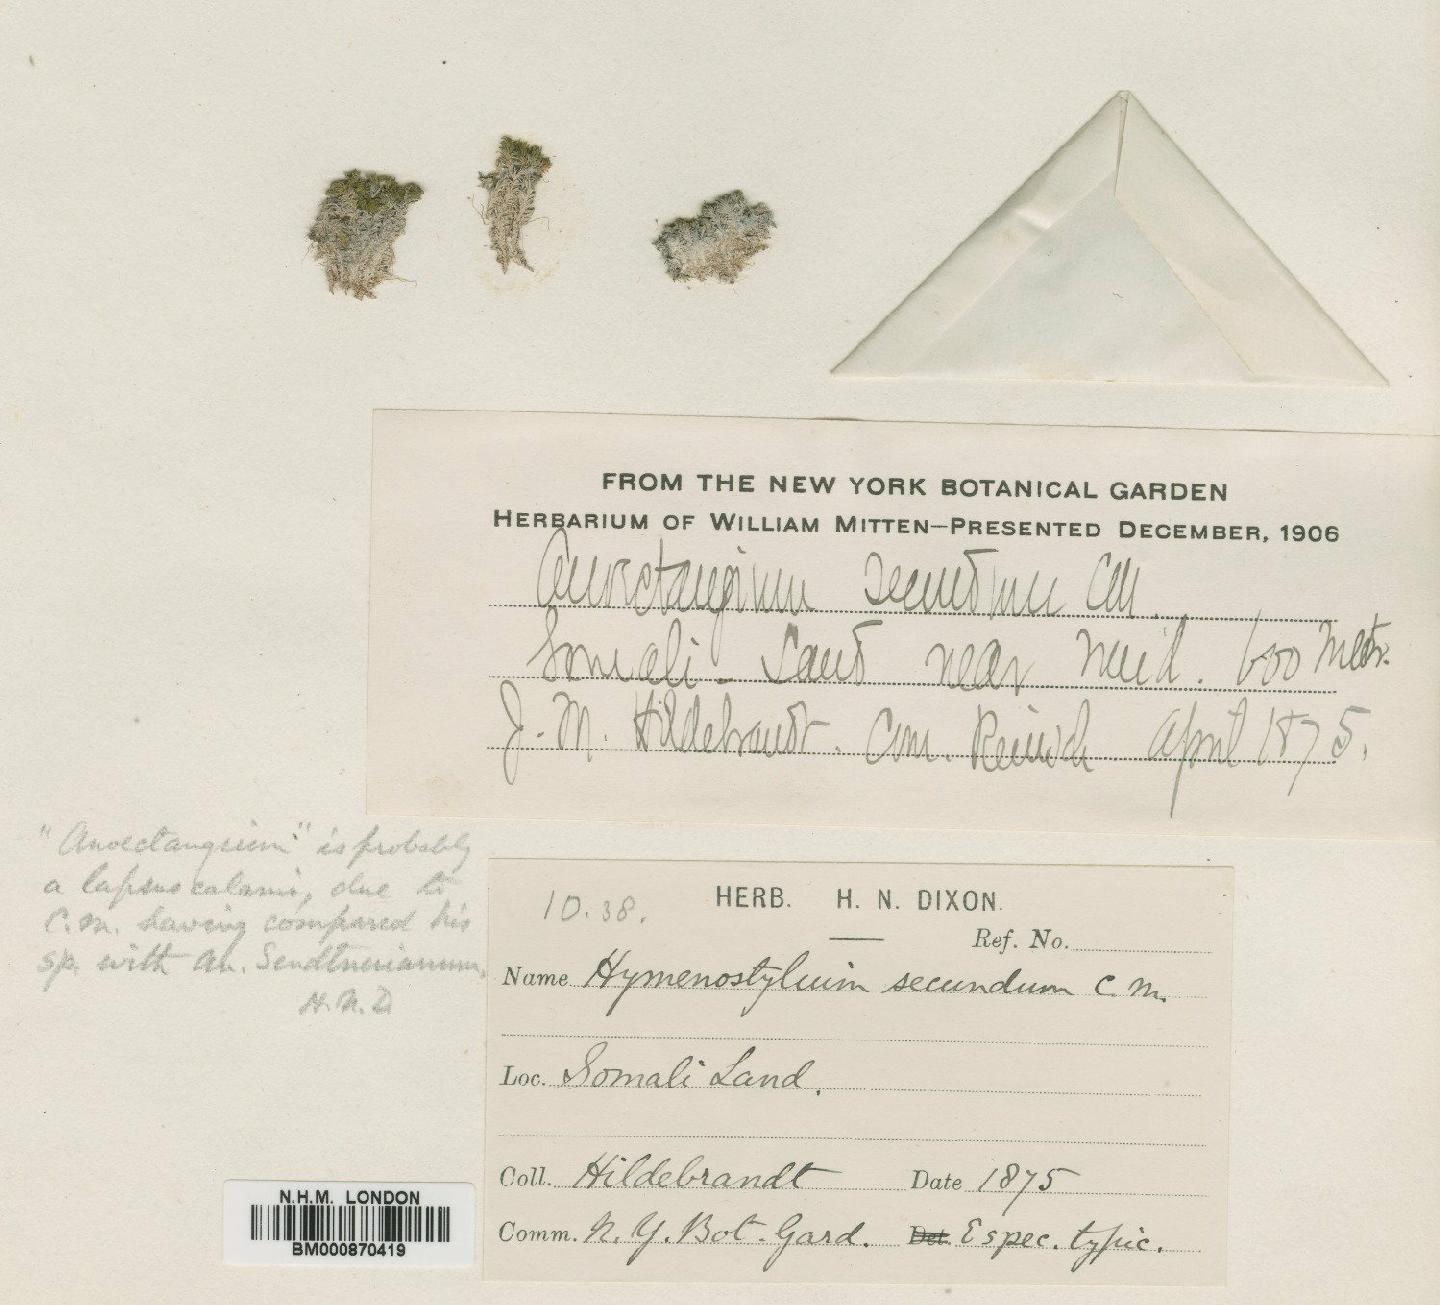 FROM THE NEW YORK BOTANICAL GARDEN
HERBARIUM OF WILLIAM MITTEN—PRESENTED DECEMBER, 1906
Anoectangium secundum CM.
Somali-Land near Meid. 600 Metr.
J. M. Hildebrandt. Com. April 1875.
"Anoectangium" is probably
a lapsus calami, due to
C.M. having compared his
sp. with An. Sendtnerianum.
H.N.D
10.38.
HERB. H. N. DIXON.
Ref. No.
Name Hymenostylium secundum C.M.
Loc. Somali Land.
Coll. Hildebrandt Date 1875
Comm. N. Y. Bot. Gard. Det. E spec. typic.
N.H.M. LONDON
BM000870419